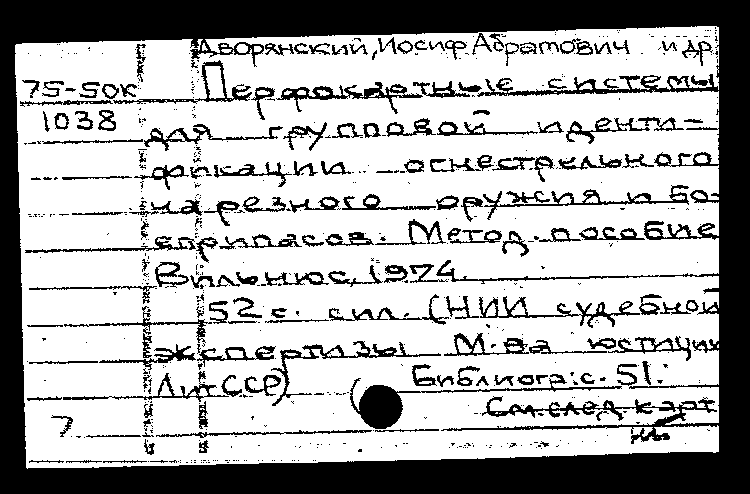 Дворянский, Иосиф Абрамович и др.
75-50к Перфокартные системы
1038 для групповой иденти-
фикации огнестрельного
нарезного оружия и бо-
еприпасов. Метод. пособие
Вильнюс, 1974.
52 с. с ил. (НИИ судебной
экспертизы М-ва юстиции
ЛитССР) Библиогр: с. 51.
7 См. след карт